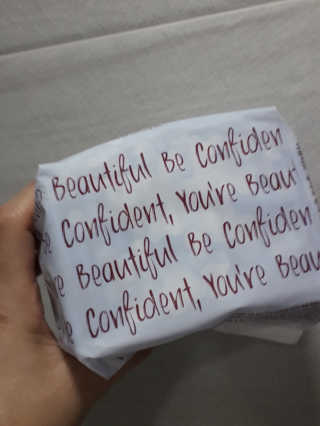 Beautiful Be Confiden
Confident, You're Beau
e Beautiful Be Confiden
e Confident, You're Beau